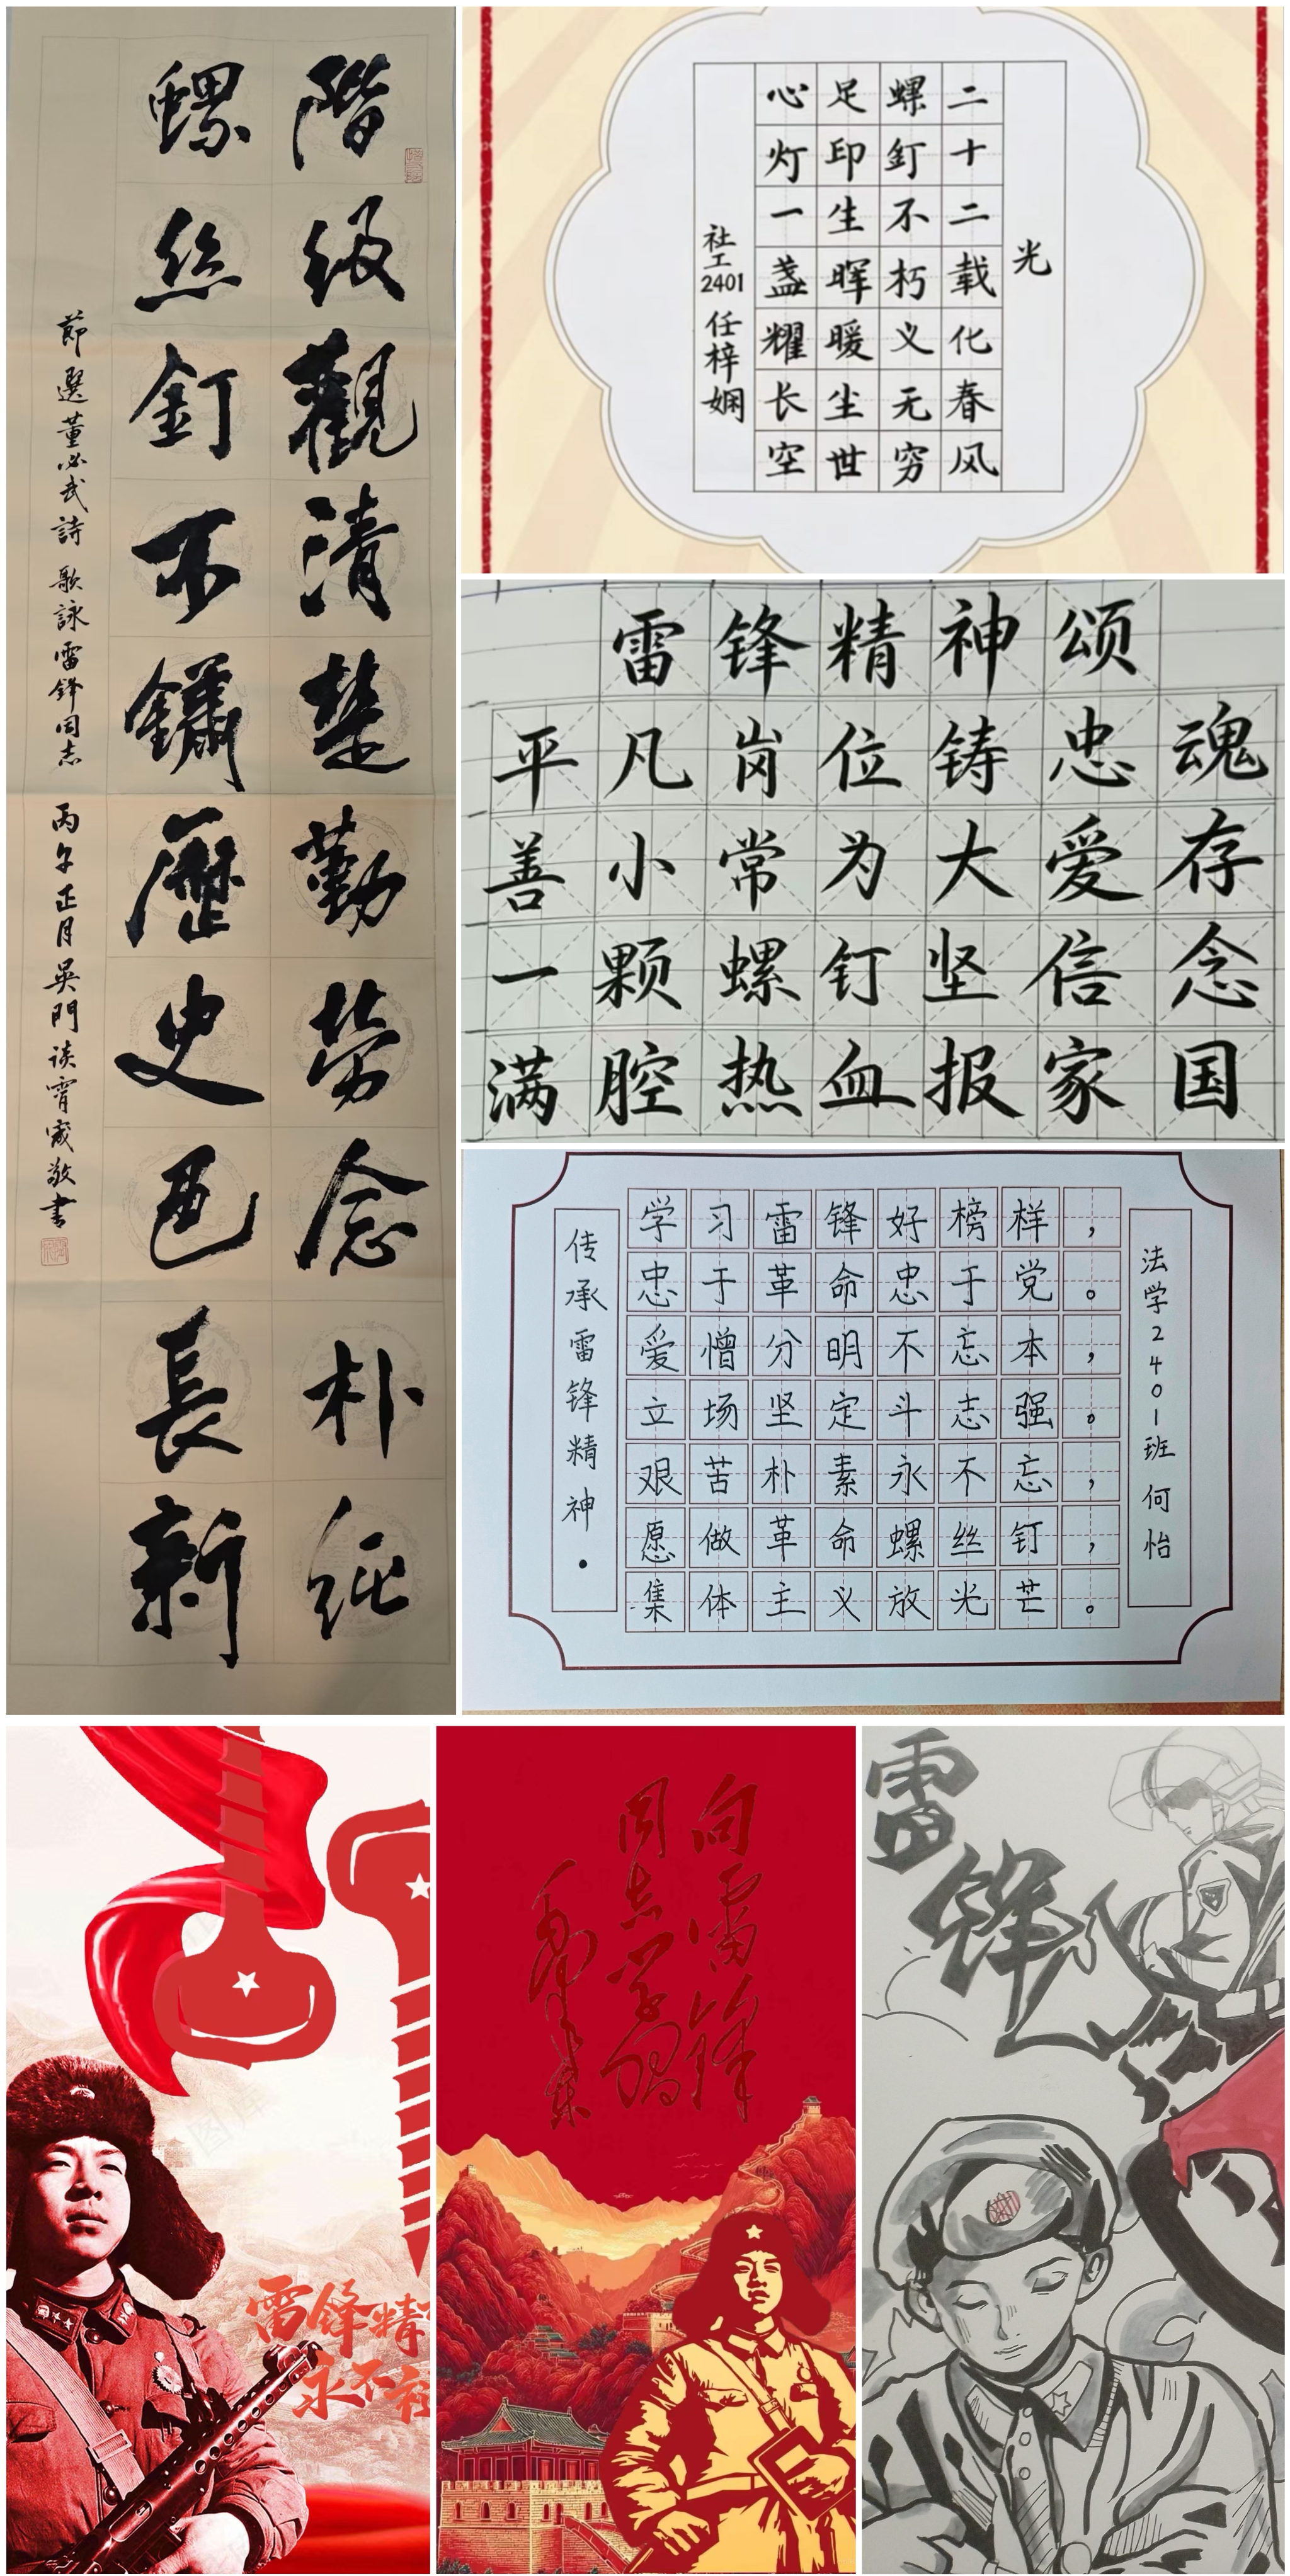 階級觀清楚勤勞念朴純
螺絲釘不鏽歷史色長新
節選董必武詩 歌詠雷鋒同志 丙午正月 吴門談霄宬敬書
光
二十二载化春风
螺釘不朽义无穷
足印生晖暖尘世
心灯一盏耀长空
社工2401 任梓娴
雷锋精神颂
平凡岗位铸忠魂
善小常为大爱存
一颗螺钉坚信念
满腔热血报家国
传承雷锋精神·
学习雷锋好榜样，
忠于革命忠于党。
爱憎分明不忘本，
立场坚定斗志强。
艰苦朴素永不忘，
愿做革命螺丝钉，
集体主义放光芒。
法学2401班 何怡
雷锋精
永不
向雷锋
同志学习
毛泽东
雷锋